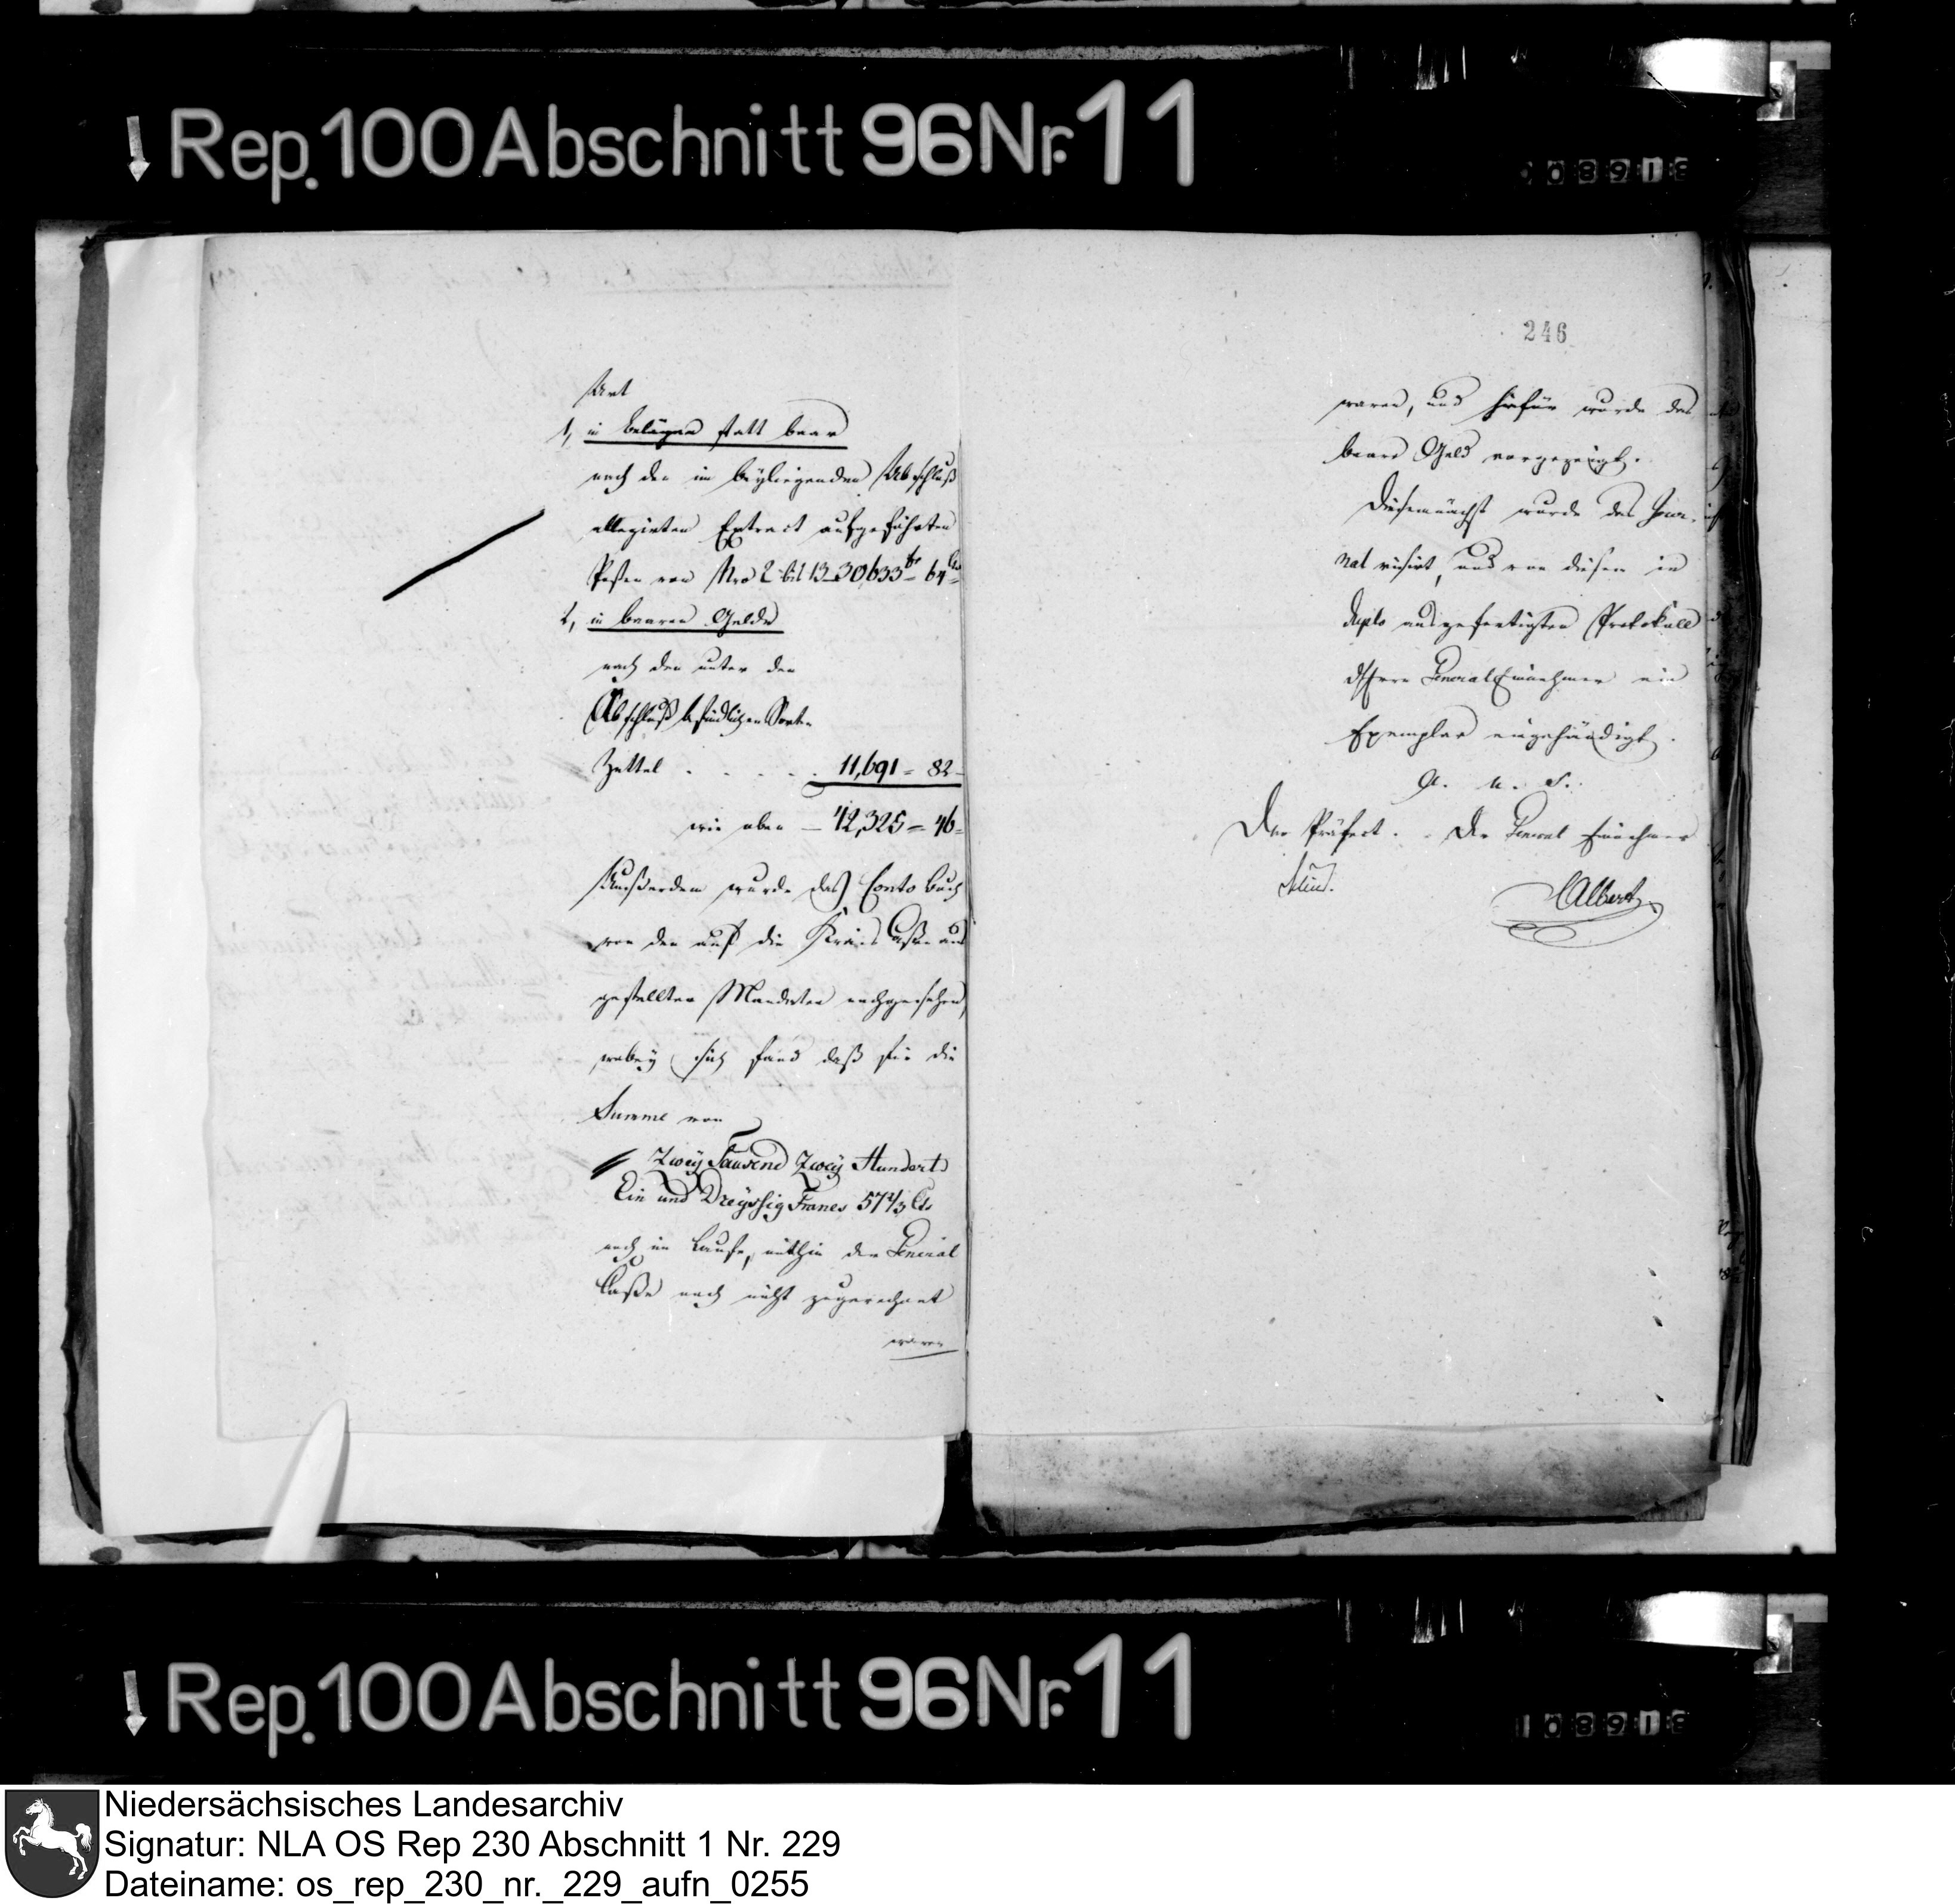 Rep. 100 Abschnitt 96 Nr. 11
Art
1, in Belägen statt baar
nach den im beyliegenden Abschluß
allegirten Extract aufgeführten
Posten von Nro 2 bis 13 - 30,633 fr 64 Cs
2, in baaren Gelde
nach den unter den
Abschluß befindlichen Sorten
Zettel . . . . . 11,691 = 82
wie oben - 42,325 = 46
Außerdem wurde das Conto buch
von den auf die Kreis Casse aus
gestellten Mandaten nachgesehen,
wobey sich fand daß für die
Summe von
Zwey Tausend Zwey Hundert
Ein und Dreyssig Francs 57 2/3 Cs
noch im Laufe, mithin der General
Casse noch nicht zugerechnet
waren
246
waren, und hiefür wurde das
baare Geld vorgezeigt.
Diesemnächst wurde das Jour-
nal visirt, und von diesen in
duplo ausgefertigten Protokoll
d Herrn General Einnehmer ein
Exemplar eingehändigt.
a. u. s.
Der Präfect. Der General Einnehmer
Albert
Rep. 100 Abschnitt 96 Nr. 11
Niedersächsisches Landesarchiv
Signatur: NLA OS Rep 230 Abschnitt 1 Nr. 229
Dateiname: os_rep_230_nr._229_aufn_0255